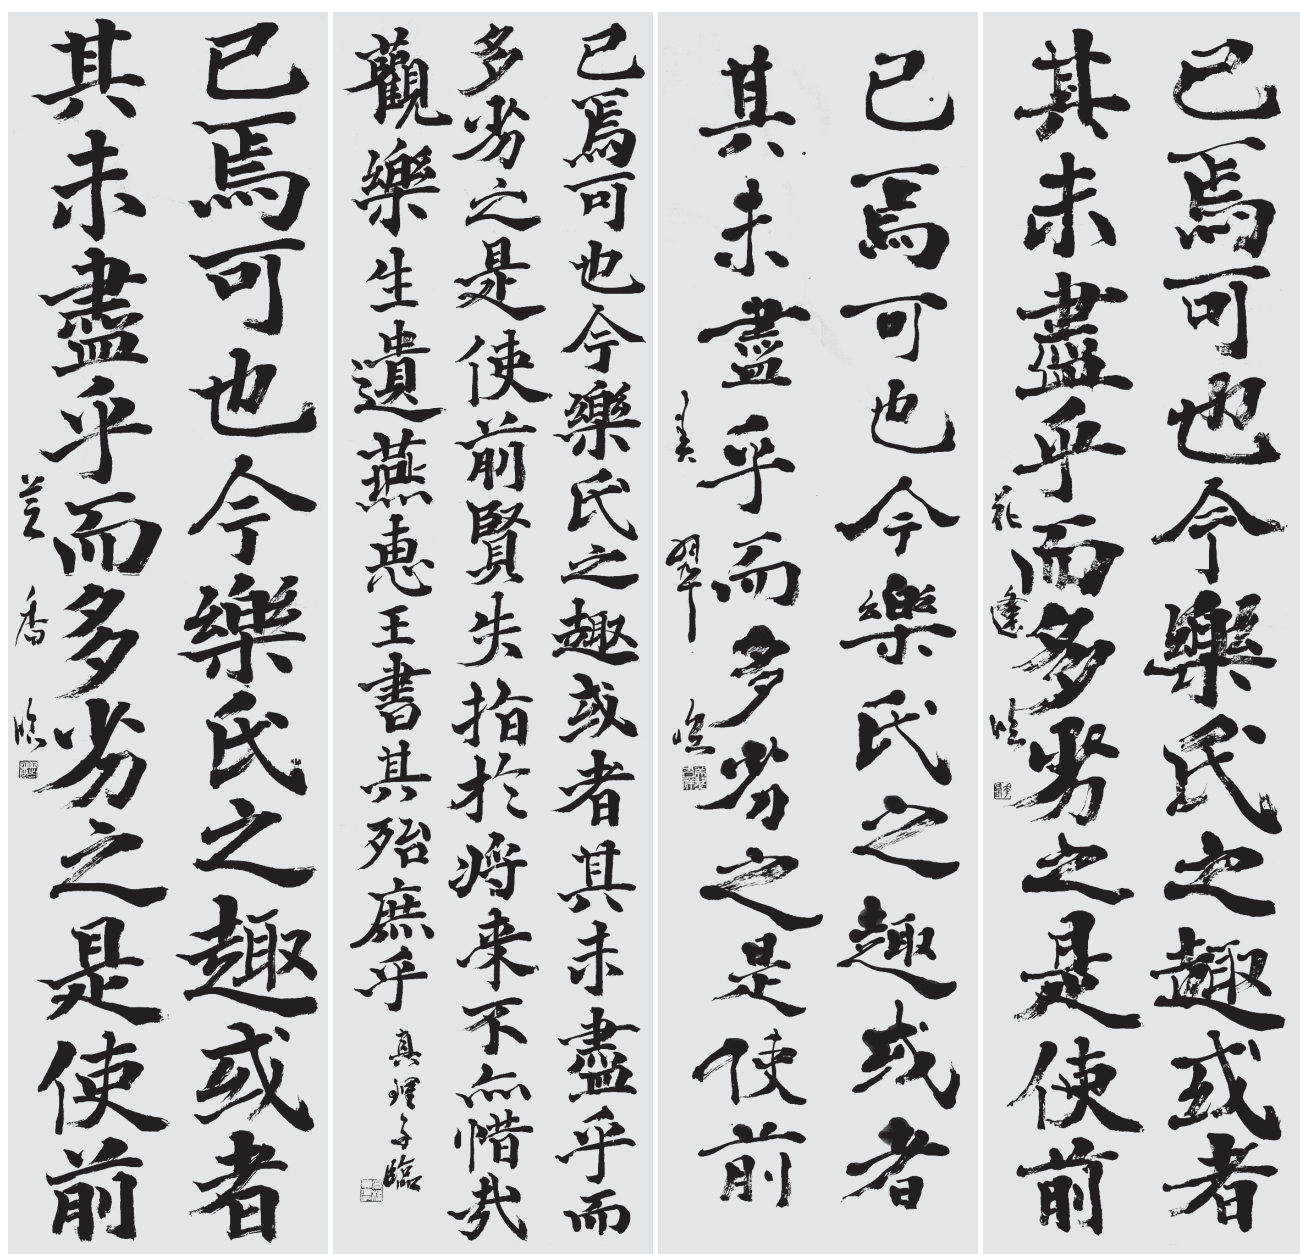 已焉可也今樂氏之趣或者
其未盡乎而多劣之是使前
臨
已焉可也今樂氏之趣或者
其未盡乎而多劣之是使前
美翠臨
已焉可也今樂氏之趣或者其未盡乎而
多劣之是使前賢失指於将来不亦惜哉
觀樂生遺燕惠王書其殆庶乎
真理子臨
已焉可也今樂氏之趣或者
其未盡乎而多劣之是使前
香臨